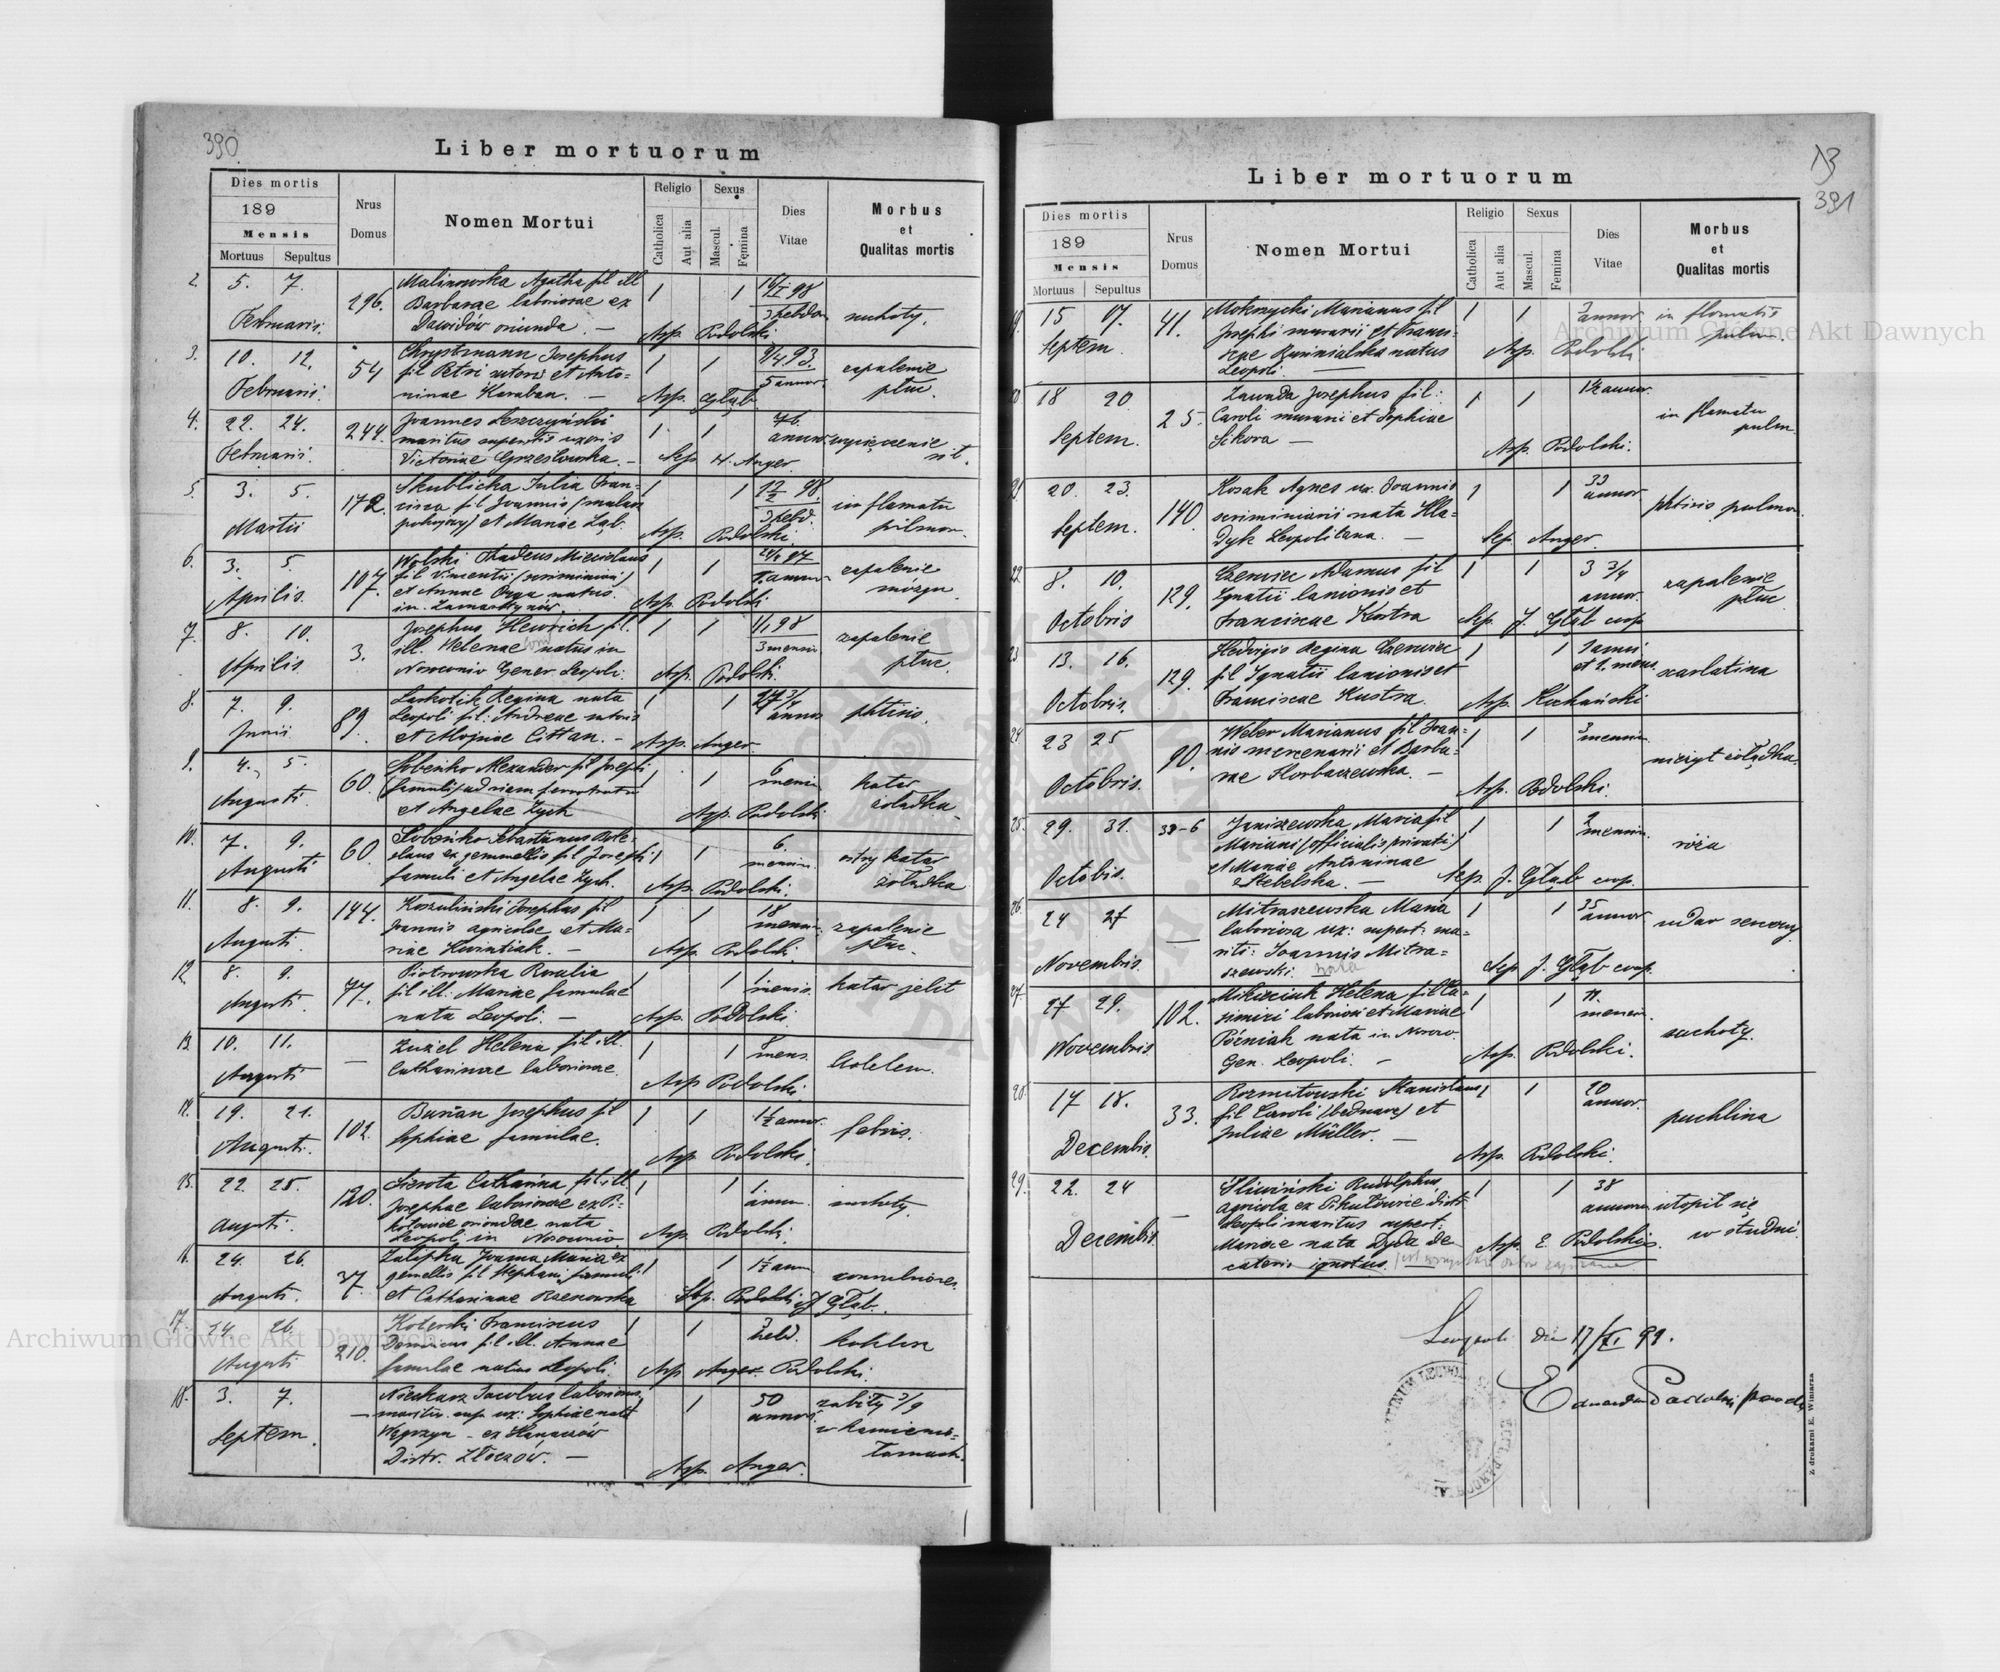 390
Liber mortuorum
Dies mortis
189
Mensis
Mortuus Sepultus
Nrus
Domus
Nomen Mortui
Religio
Catholica
Aut alia
Sexus
Mascul.
Femina
Dies
Vitae
Morbus
et
Qualitas mortis
2. 5. 7. 296. Malinowska Agatha fil ill 1 1 98
Februarii. Barbarae laboriosae ex 3 hebdom suchoty.
Dawidów oriunda. — Asp. Podolski
3. 10. 12. 54 Josephus 1 1 9/4 93. zapalenie
Februarii. fil Petri sutoris et Anto- 5 annor. płuc.
ninae Karaban. — Asp. Głąb
4. 22. 24. 244. Joannes Leszczyński 1 1 76.
Februarii. maritus superstis uxoris annor
Victoriae — Sep. H. Anger.
5. 3. 5. 172. Skublicka Julia Fran- 1 1 98
Martii cisca fil Joannis 3 hebd. inflamatio
et Mariae Ząb. Asp. Podolski. pulmon.
6. 3. 5. 107. Wolski Thadeus Miecislaus 1 1 97 zapalenie
Aprilis. fil Vincentii mózgu.
et Annae natus
in Zamarstynów. Asp. Podolski
7. 8. 10. 3. Josephus Hewrich fil. 1 1 1/1 98 zapalenie
Aprilis ill. Helenae natus in 3 mensium płuc.
Nosocomio Gener Leopoli. Asp. Podolski.
8. 7. 9. 89. Regina nata 1 1 phtisis.
Junii Leopoli fil: Andreae sutoris annor
et Aloysiae — Asp. Anger.
9. 4. 5. 60. Sobeńko Alexander fil Josephi 1 1 6 katar
Augusti. famuli mensium żołądka
et Angelae Zych Asp. Podolski
10. 7. 9. 60. Sobeńko Sebastianus Bole- 1 1 6. ostry katar
Augusti slaus ex gemmellis fil Josephi mensium żołądka
famuli et Angelae Zych. Asp. Podolski.
11. 8. 9. 144. Josephus fil 1 1 18 zapalenie
Augusti. Joannis agricolae et Ma- mensium płuc.
riae Kwintiak. — Asp. Podolski.
12. 8. 9. 77. Piotrowska Rosalia 1 1 1 katar jelit
Augusti fil ill: Mariae famulae mensis.
nata Leopoli. — Asp. Podolski.
13. 10. 11. — Zuziel Helena fil ill. 1 1 mens.
Augusti Catharinae laboriosae. Asp Podolski.
14. 19. 21. 102. Burian Josephus fil 1 1 1½ annor. febris.
Augusti. Sophiae famulae. Asp Podolski.
15. 22. 25. 120. Sierota Catharina fil ill 1 1 1. suchoty
Augusti. Josephae laboriosae ex Pi- annum
kołowice oriundae nata
Leopoli in Nosocomio Asp. Podolski.
16. 24. 26. 37 Zalipka Joanna Maria ex 1 1 1½ ann convulsiones.
Augusti. gemellis fil Stephani famuli
et Catharinae Raczowska Sep. Podolski Głąb.
17. 24 26. 210. Koterski Franciscus 1 1 3 koklusz
Augusti Dominicus fil ill. Annae hebd.
famulae natus Leopoli. Asp. Anger Podolski.
18. 3. 7. — Niecharz Jacobus laboriosus 1 50 zabity 3/9
Septem. maritus sup. ux: Sophiae nata annor. w kamienio-
Węgrzyn – ex Hanaczów łomach.
Distr. Złoczów. — Asp. Anger.
13
391
Liber mortuorum
Dies mortis
189
Mensis
Mortuus Sepultus
Nrus
Domus
Nomen Mortui
Religio
Catholica
Aut alia
Sexus
Mascul.
Femina
Dies
Vitae
Morbus
et
Qualitas mortis
19. 15 17. 41. Mokrzycki Marianus fil 1 1 3 inflamatio
Septem. Josephi murarii et Franci- annor pulm.
scae natus
Leopoli. — Asp. Podolski
20 18 20. 25. Zawada Josephus fil: 1 1 1½ annor. inflamatio
Septem. Caroli murarii et Sophiae pulm.
Sikora — Asp. Podolski.
21. 20. 23. 140. Kosak Agnes ux. Joannis 1 1 33 phtisis pulmon.
Septem. nata Hla- annor.
dyk Leopolitana. — Sep. Anger.
22. 8. 10. 129. Czerwiec Adamus fil 1 1 3 3/4 zapalenie
Octobris Ignatii lanionis et annor. płuc
Franciscae Kustra Sep. J. Głąb coop.
23 13. 16. 129. Hedvigis Regina Czerwiec 1 1 scarlatina
Octobris. fil Ignatii lanionis et et 1. mens.
Franciscae Kustra. Asp. Kochański
24. 23 25 90. Weber Marianus fil Joan- 1 1 mensium nieżyt żołądka.
Octobris. nis mercenarii et Barba-
rae Horbaczewska. — Asp. Podolski.
25. 29. 31. 38-6 Janiszewska Maria fil 1 1 2 róża
Octobis. Mariani (officialis privati) mensium.
et Mariae Antoninae
Stebelska. — Asp. J. Głąb coop.
26. 24 27 — Mitraszewska Maria 1 1 35 udar sercowy
Novembris. laboriosa ux: superst: ma- annor
riti: Joannis Mitra-
szewski. Sep J. Głąb coop.
27. 27 29. 102. Helena fil Ca- 1 1 11. suchoty.
Novembris simiri laboriosi et Mariae mensium.
Poźniak nata in Nosoco.
Gen. Leopoli. — Asp. Podolski.
28. 17 18. 33. Rozmitowski Stanislaus 1 1 20 puchlina
Decembis. fil Caroli (bednarz) et annor.
Juliae Müller. — Asp. Podolski.
29. 22. 24 — Śliwiński Rudolphus 1 1 38 utopił się
Decembis. agricola ex Pikułowice distr. annorum w studni.
Leopoli maritus superst:
Mariae nata Dyda de
cateris ignotus. Asp. E. Podolski.
Leopoli die 17/XI 99.
Eduardus Podolski
Z drukarni E. Winiarza
Archiwum Główne Akt Dawnych
Archiwum Główne Akt Dawnych